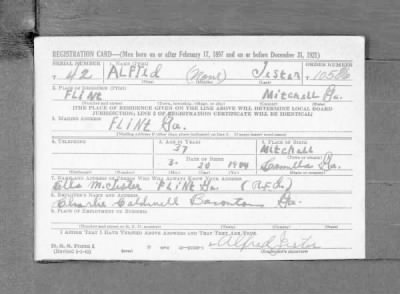 REGISTRATION CARD—(Men born on or after February 17, 1897 and on or before December 31, 1921)
SERIAL NUMBER 1. NAME (Print) ORDER NUMBER
T 42 Alfred (None) Jester
(First) (Middle) (Last)
2. PLACE OF RESIDENCE (Print)
Flint Mitchell Ga.
(Number and street) (Town, township, village, or city) (County) (State)
[THE PLACE OF RESIDENCE GIVEN ON THE LINE ABOVE WILL DETERMINE LOCAL BOARD
JURISDICTION; LINE 2 OF REGISTRATION CERTIFICATE WILL BE IDENTICAL]
3. MAILING ADDRESS
Flint Ga.
[Mailing address if other than place indicated on line 2. If same insert word same]
4. TELEPHONE 5. AGE IN YEARS 6. PLACE OF BIRTH
37 Mitchell
DATE OF BIRTH (Town or county)
3- 20 1904 Camilla Ga.
(Exchange) (Number) (Mo.) (Day) (Yr.) (State or country)
7. NAME AND ADDRESS OF PERSON WHO WILL ALWAYS KNOW YOUR ADDRESS
Ella M. Jester Flint Ga.
8. EMPLOYER'S NAME AND ADDRESS
Charlie Caldwell Baconton Ga.
9. PLACE OF EMPLOYMENT OR BUSINESS
(Number and street or R. F. D. number) (Town) (County) (State)
I AFFIRM THAT I HAVE VERIFIED ABOVE ANSWERS AND THAT THEY ARE TRUE.
D. S. S. Form 1
Alfred Jester
(Registrant's signature)